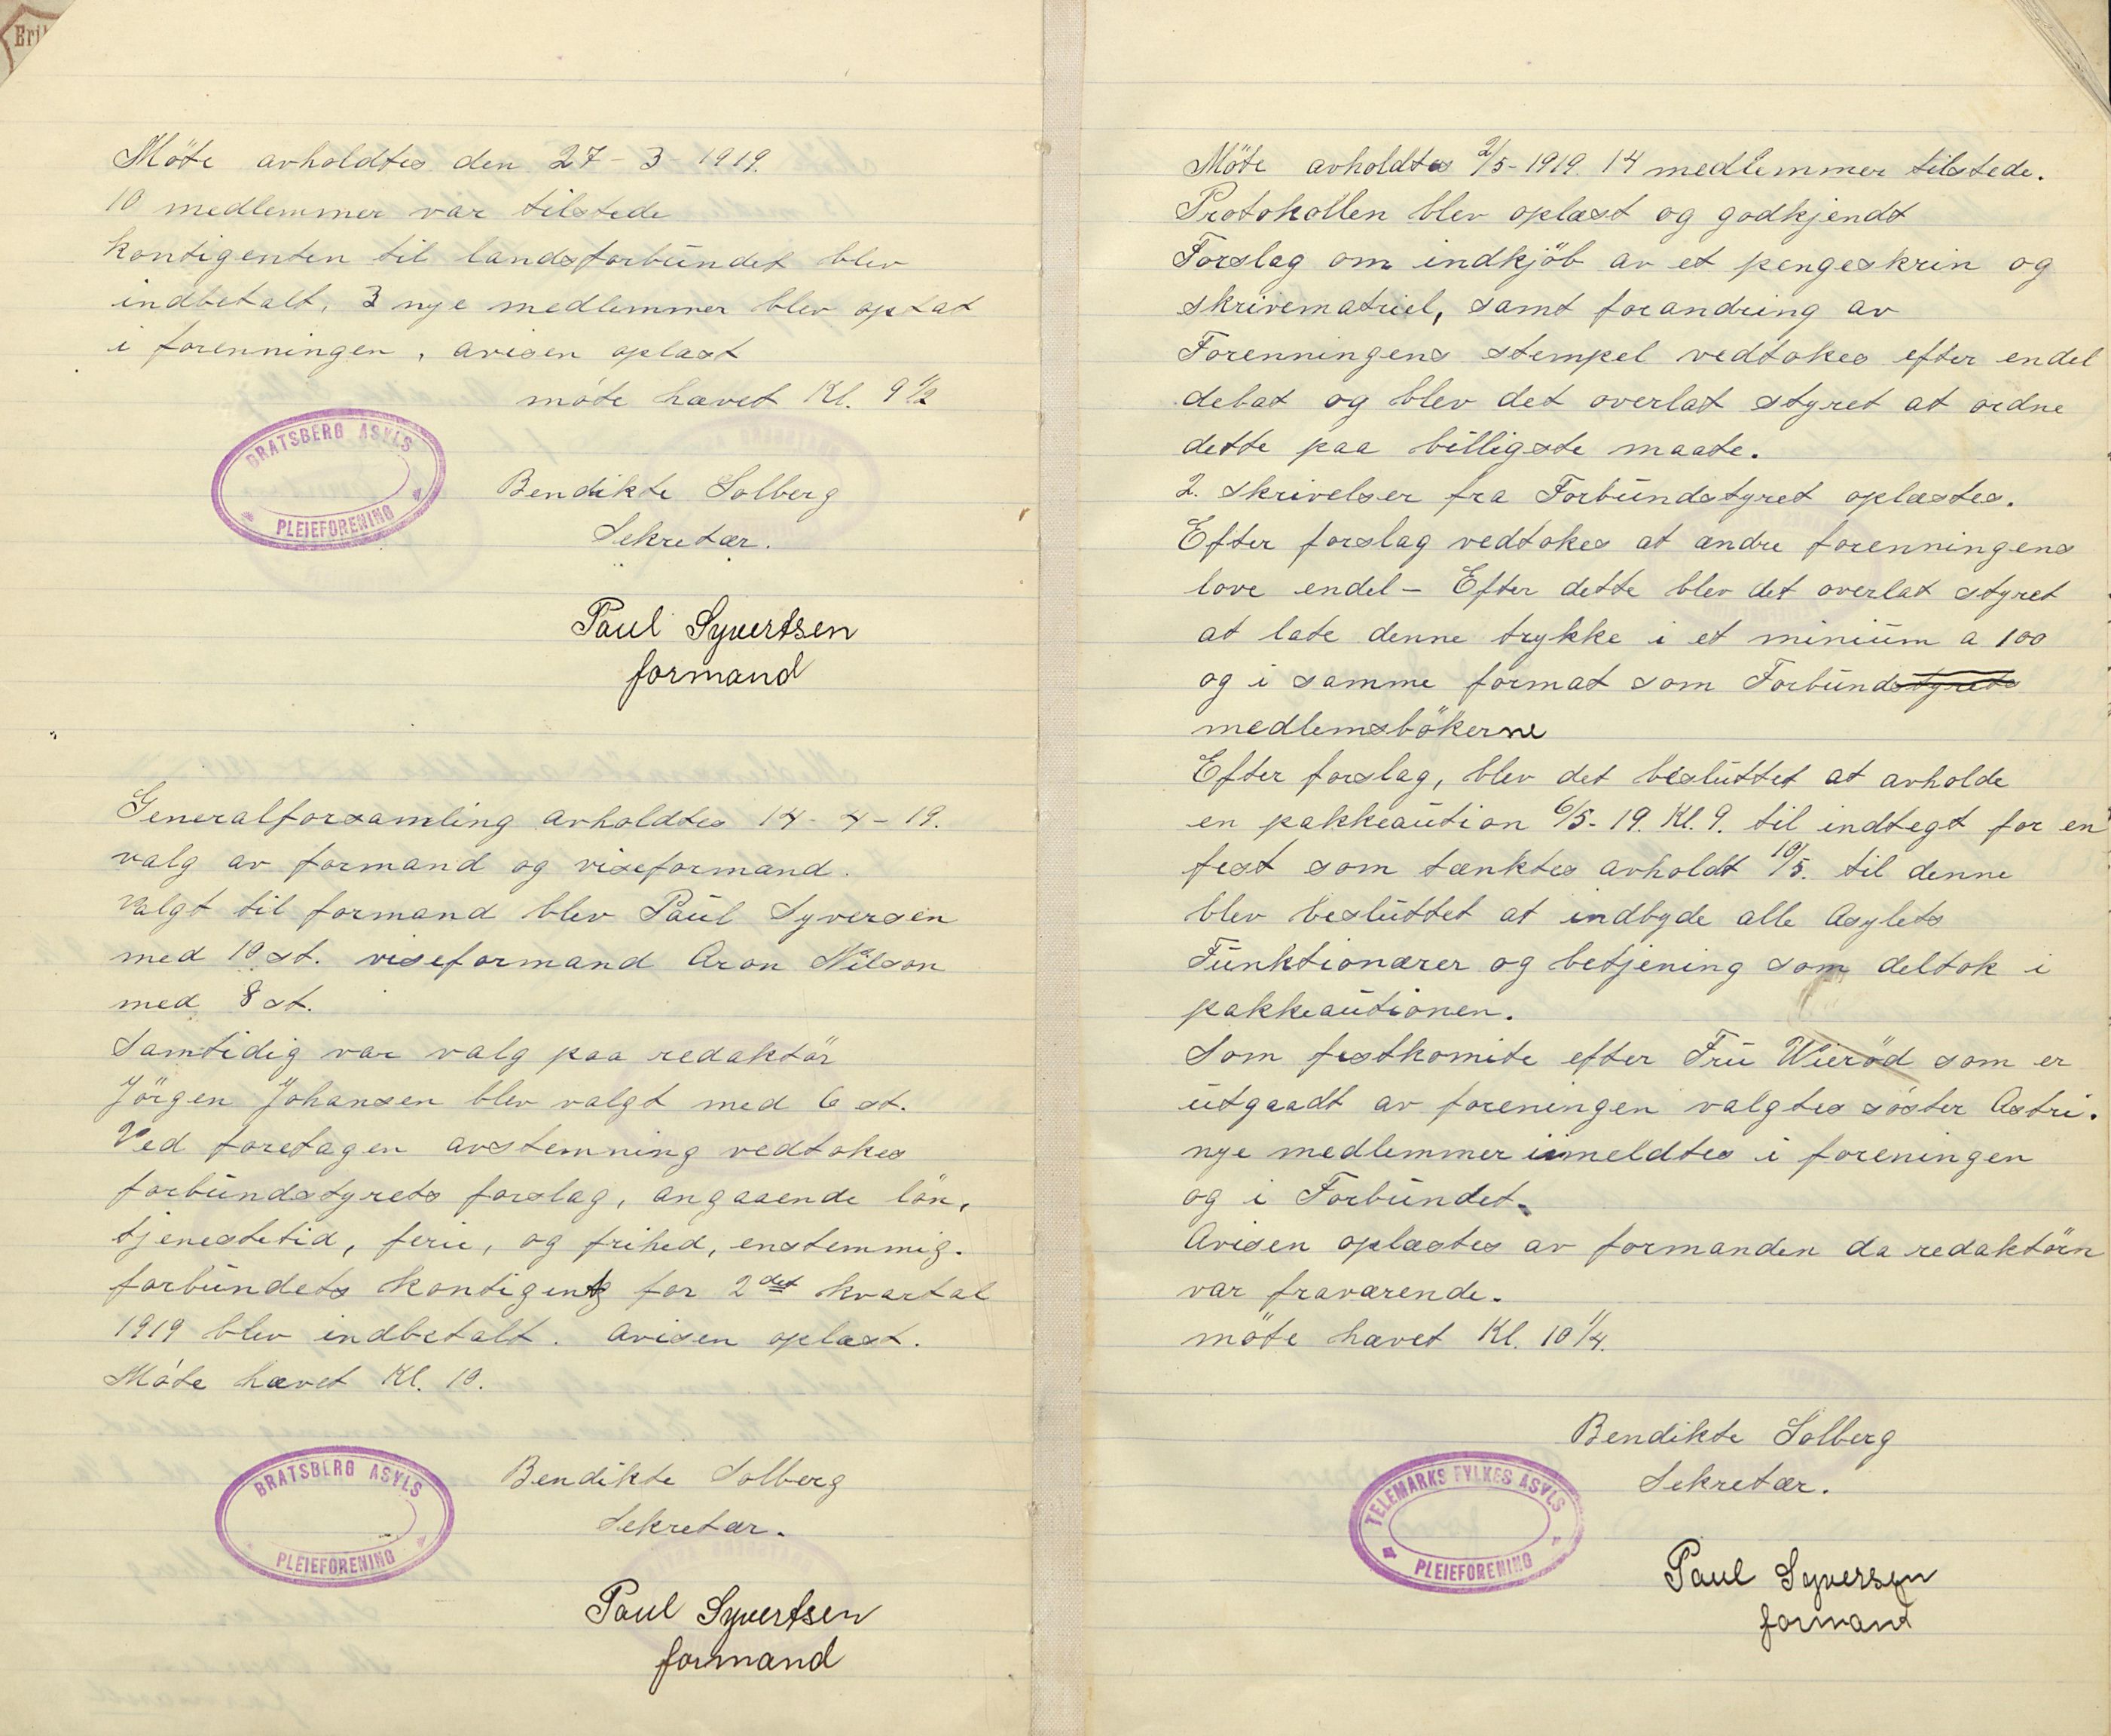 Möte avholdtes den 27-3-1919.
10 medlemmer var tilstede
kontigenten til landsforbündet blev
indbetalt, 3 nye medlemmer blev optat
i forenningen, avisen oplæst
möte hævet Kl. 9 1/2
BRATSBERG ASYLS
PLEIEFORENING
Bendikte Solberg
Sekretær.
Paul Syvertsen
formand
Generalforsamling avholdtes 14-4-19.
valg av formand og viseformand.
Valgt til formand blev Paül Syversen
med 10 st. viseformand Aron Nilson
med 8 st.
Samtidig var valg paa redaktör
Jörgen Johansen blev valgt med 6 st.
Ved foretagen avstemning vedtokes
forbündstyrets forslag, angaaende lön,
tjenestetid, ferie, og frihed, enstemmig.
forbündets kontigent for 2det kvartal
1919 blev indbetalt. Avisen oplæst.
Möte hævet Kl. 10.
BRATSBERG ASYLS
PLEIEFORENING
Bendikte Solberg
Sekretær.
Paul Syvertsen
formand
Möte avholdtes 2/5-1919. 14 medlemmer tilstede.
Protokollen blev oplæst og godkjendt
Forslag om indkjöb av et pengeskrin og
skrivematriel, samt forandring av
Forenningens stempel vedtokes efter endel
debat og blev det overlat styret at ordne
dette paa billigste maate.
2. skrivelser fra Forbündstyret oplæstes.
Efter forslag vedtokes at ændre forenningens
love endel - Efter dette blev det overlat styret
at late denne trykke i et miniüm a 100
og i samme format som Forbündstyrets
medlemsbökerne
Efter forslag, blev det beslüttet at avholde
en pakkeaütion 6/5-19. Kl. 9. til indtegt for en
fest som tænktes avholdt 10/5. til denne
blev beslüttet at indbyde alle Asylets
Fünktionærer og betjening som deltok i
pakkeaütionen.
Som festkomite efter Frü Wieröd som er
ütgaadt av foreningen valgtes söster Astri.
nye medlemmer inmeldtes i foreningen
og i Forbündet.
Avisen oplæstes av formanden da redaktörn
var fraværende.
möte hævet Kl. 10 1/4.
Bendikte Solberg
Sekretær.
TELEMARKS FYLKES ASYLS
PLEIEFORENING
Paul Syversen
formand